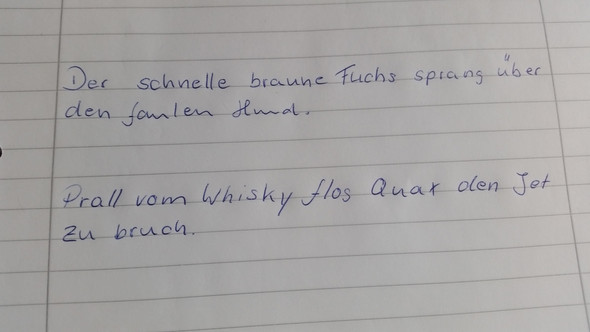 Der schnelle braune Fuchs sprang über
den faulen Hund.
Prall vom Whisky flos Quax den Jet
zu bruch.